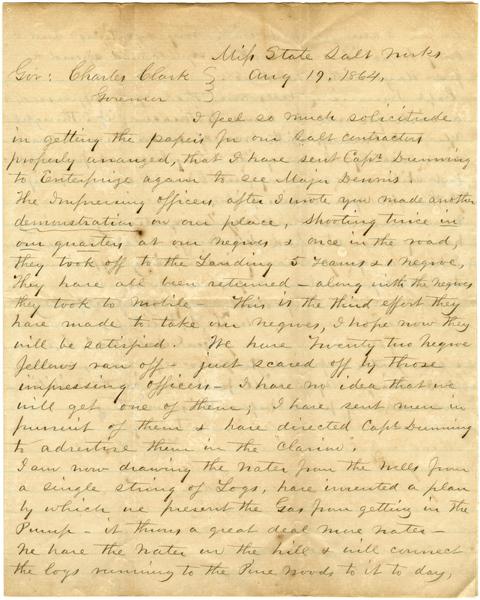 Miss State Salt Works
Gov: Charles Clark } Aug 19, 1864,
Governor
I feel so much solicitude
in getting the papers for our Salt contractors
properly arranged, that I have sent Capt Dunning
to Enterprize again to see Major Dennis.
The Impressing officers, after I wrote you made another
demonstration on our place, shooting twice in
our quarters at our negroes & once in the road,
they took off to the Landing 5 Teams & 1 negroe,
They have all been returned - along with the negroes
they took to Mobile - This is the third effort they
have made to take our negroes, I hope now they
will be satisfied. We have Twenty two negroe
fellows ran off - just scared off by those
impressing officers - I have no idea that we
will get one of them; I have sent men in
pursuit of them & have directed Capt Dunning
to advertize them in the Clarion.
I am now drawing the water from the wells from
a single string of Logs, have invented a plan
by which we prevent the Gas from getting in the
Pump - it throws a great deal more water -
We have the water on the hill & will connect
the logs running to the Pine woods to it to day,